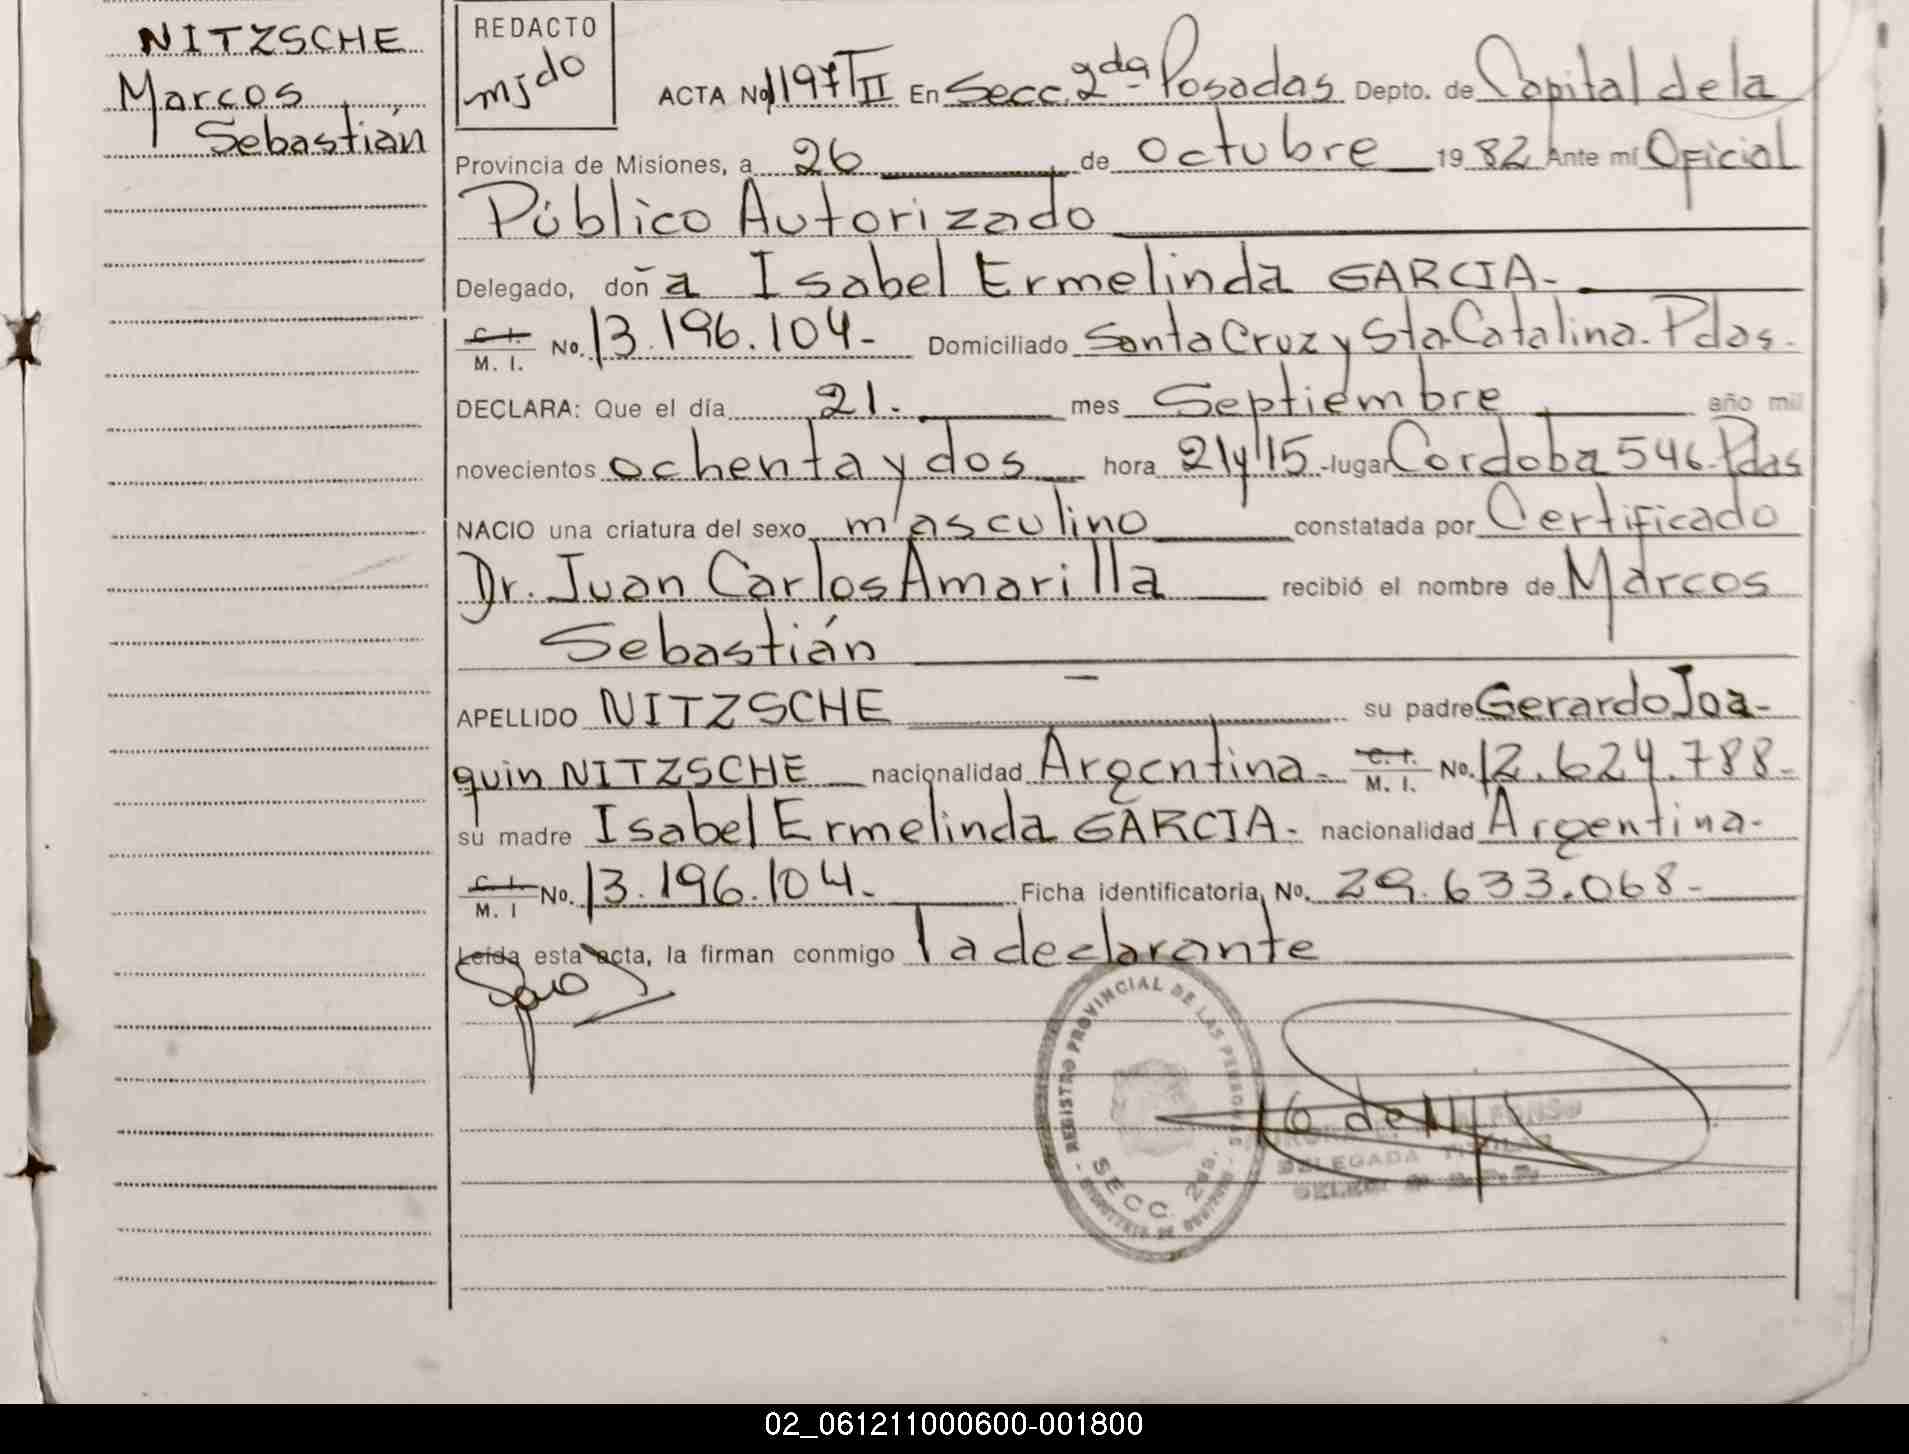 NITZSCHE
Marcos
Sebastián
REDACTO
mjdo
ACTA No 1197/II En Secc. 2da Posadas Depto. de Capital de la
Provincia de Misiones, a 26 de octubre 1982 Ante mí Oficial
Público Autorizado
Delegado, doña Isabel Ermelinda GARCIA-
C. I.
M. I. No. 13.196.104- Domiciliado Santa Cruz y Sta Catalina. Pdas.
DECLARA: Que el día 21. mes Septiembre año mil
novecientos ochenta y dos hora 21 y 15 - lugar Cordoba 546 Pdas
NACIO una criatura del sexo masculino constatada por Certificado
Dr. Juan Carlos Amarilla recibió el nombre de Marcos
Sebastián
APELLIDO NITZSCHE su padre Gerardo Joa-
quin NITZSCHE nacionalidad Argentina - C. I.
M. I. No. 12.624.788-
su madre Isabel Ermelinda GARCIA. nacionalidad Argentina-
C. I.
M. I No. 13.196.104- Ficha identificatoria No. 29.633.068-
Leída esta acta, la firman conmigo la declarante
- REGISTRO PROVINCIAL DE LAS PERSONAS -
SECC. 2da.
DELEGADA TITULAR
02_061211000600-001800